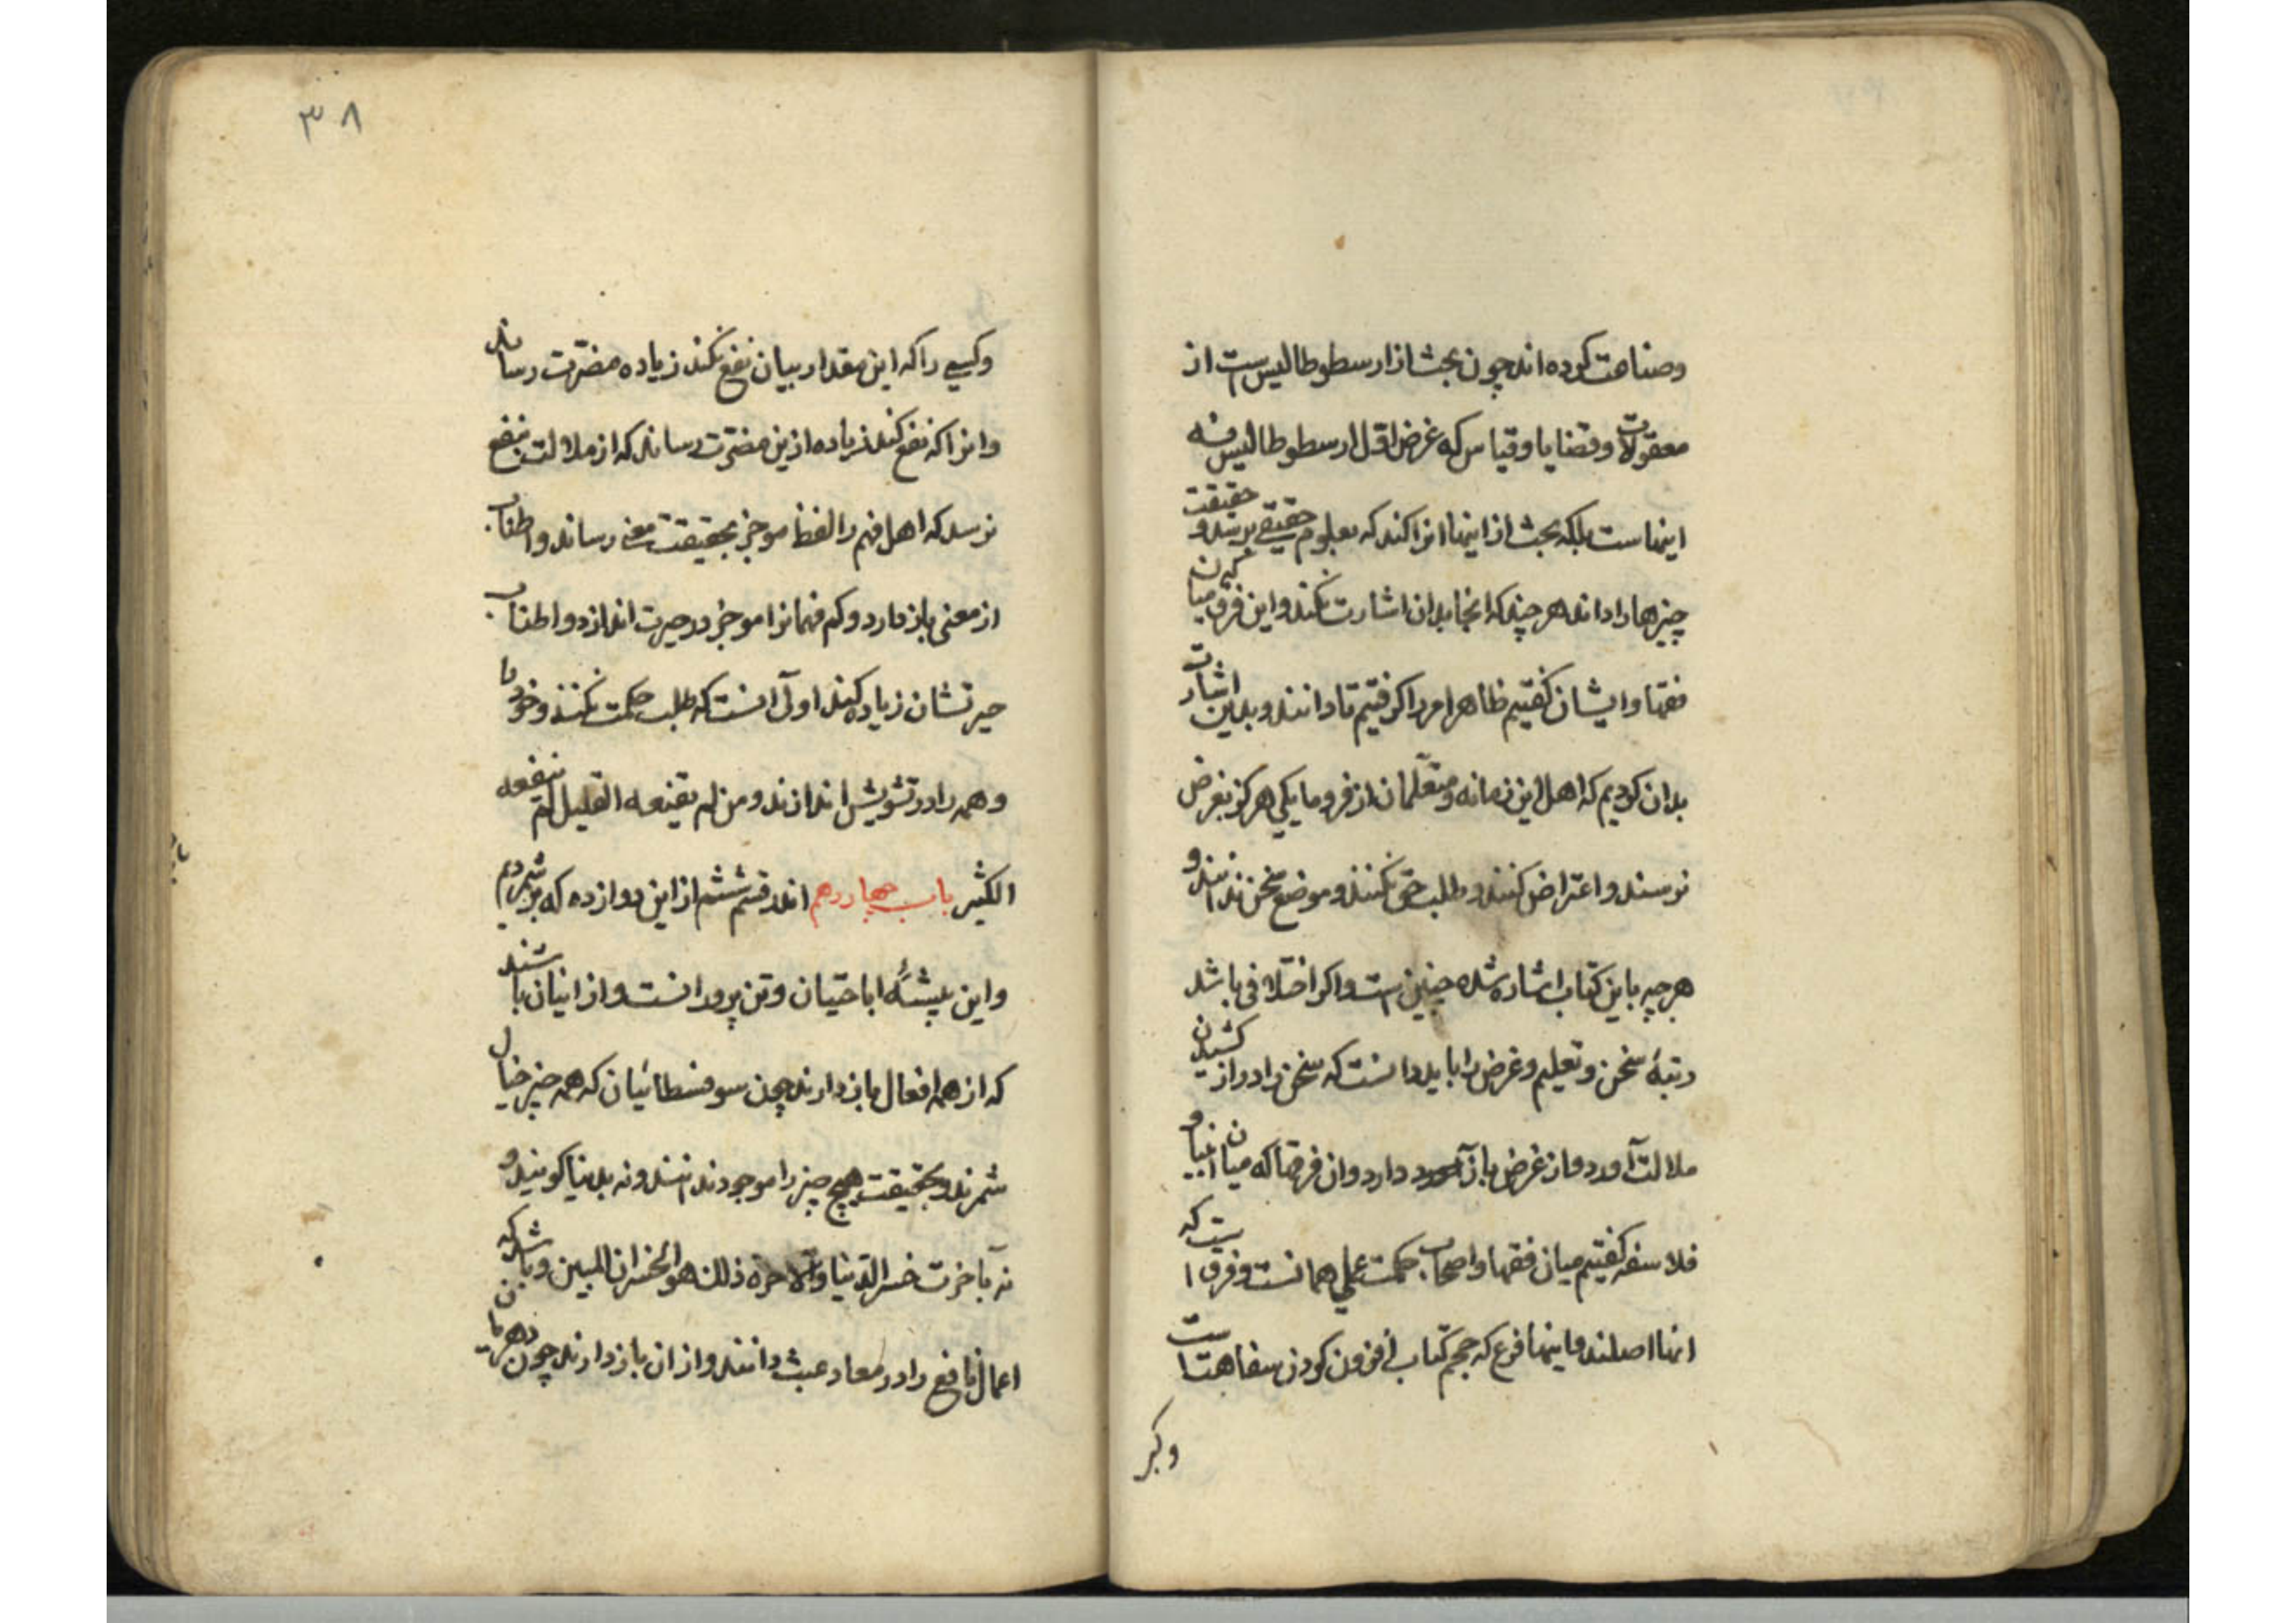 وصناعت کرده اند چون بحث از ارسطوطالیس است از
معقولات وقضایا وقیاس که غرض اول ارسطوطالیس نه
اینهاست بلکه بحث از اینها انرا کند که بعلوم حقیقی برسد و حقیقت
چیزها را داند هرچند که انجا بدان اشارت نکند و این فرق میان
فقها وایشان کفتیم ظاهر امر را کرفتیم تا دانند وبدین اشارت
بدان کردیم که اهل این زمانه ومتعلمان از فرومایکی هرکز بغرض
نرسند و اعتراض کنند و طلب حق نکنند و موضع سخن ندانند و
هرچه باین کتاب اشاره شده چنین است واکر اختلافی باشد
رتبهٔ سخن وتعلیم وغرض را باید دانست که سخن را دراز کشیدن
ملالت آورد و از غرض باز دارد وان فرقها که میان انبیا و
فلاسفه کفتیم میان فقها واصحاب حکمت عملی همانست وفرق ا ست که
انها اصلند و اینها فرع که حجم کتاب افزون کردن سفاهتست
وکر
۳۸
وکسی را که این مقدار بیان نفع نکند زیاده مضرت رساند
وانرا که نفع کند زیاده ازین مضرت رساند که از ملالت بنفع
نرسد که اهل فهم را لفظ موجز بحقیقت معنی رساند و اطناب
از معنی باز دارد و کم فهمانرا موجز در حیرت اندازد و اطناب
حیرتشان زیاده کند اولی آنست که طلب حکمت نکنند و خود را
وهمه را در تشویش اندازند ومن لم یقنعه القلیل لم ینفعه
الکثیر باب چهاردهم اندر قسم ششم از این دوازده که بر شمردیم
واین پیشهٔ اباحتیان وتن پرورانست و از اینان باشند
که از همه افعال باز دارند چون سوفسطائیان که همه چیز خیال
شمرند و بحقیقت هیچ چیز را موجود ندانند ونه بدنیا کویند و
نه بآخرت خسر الدنیا والآخرة ذلك هو الخسران المبین وباشد که
اعمال نافع را در معاد عبث دانند و از ان باز دارند چون دهریان